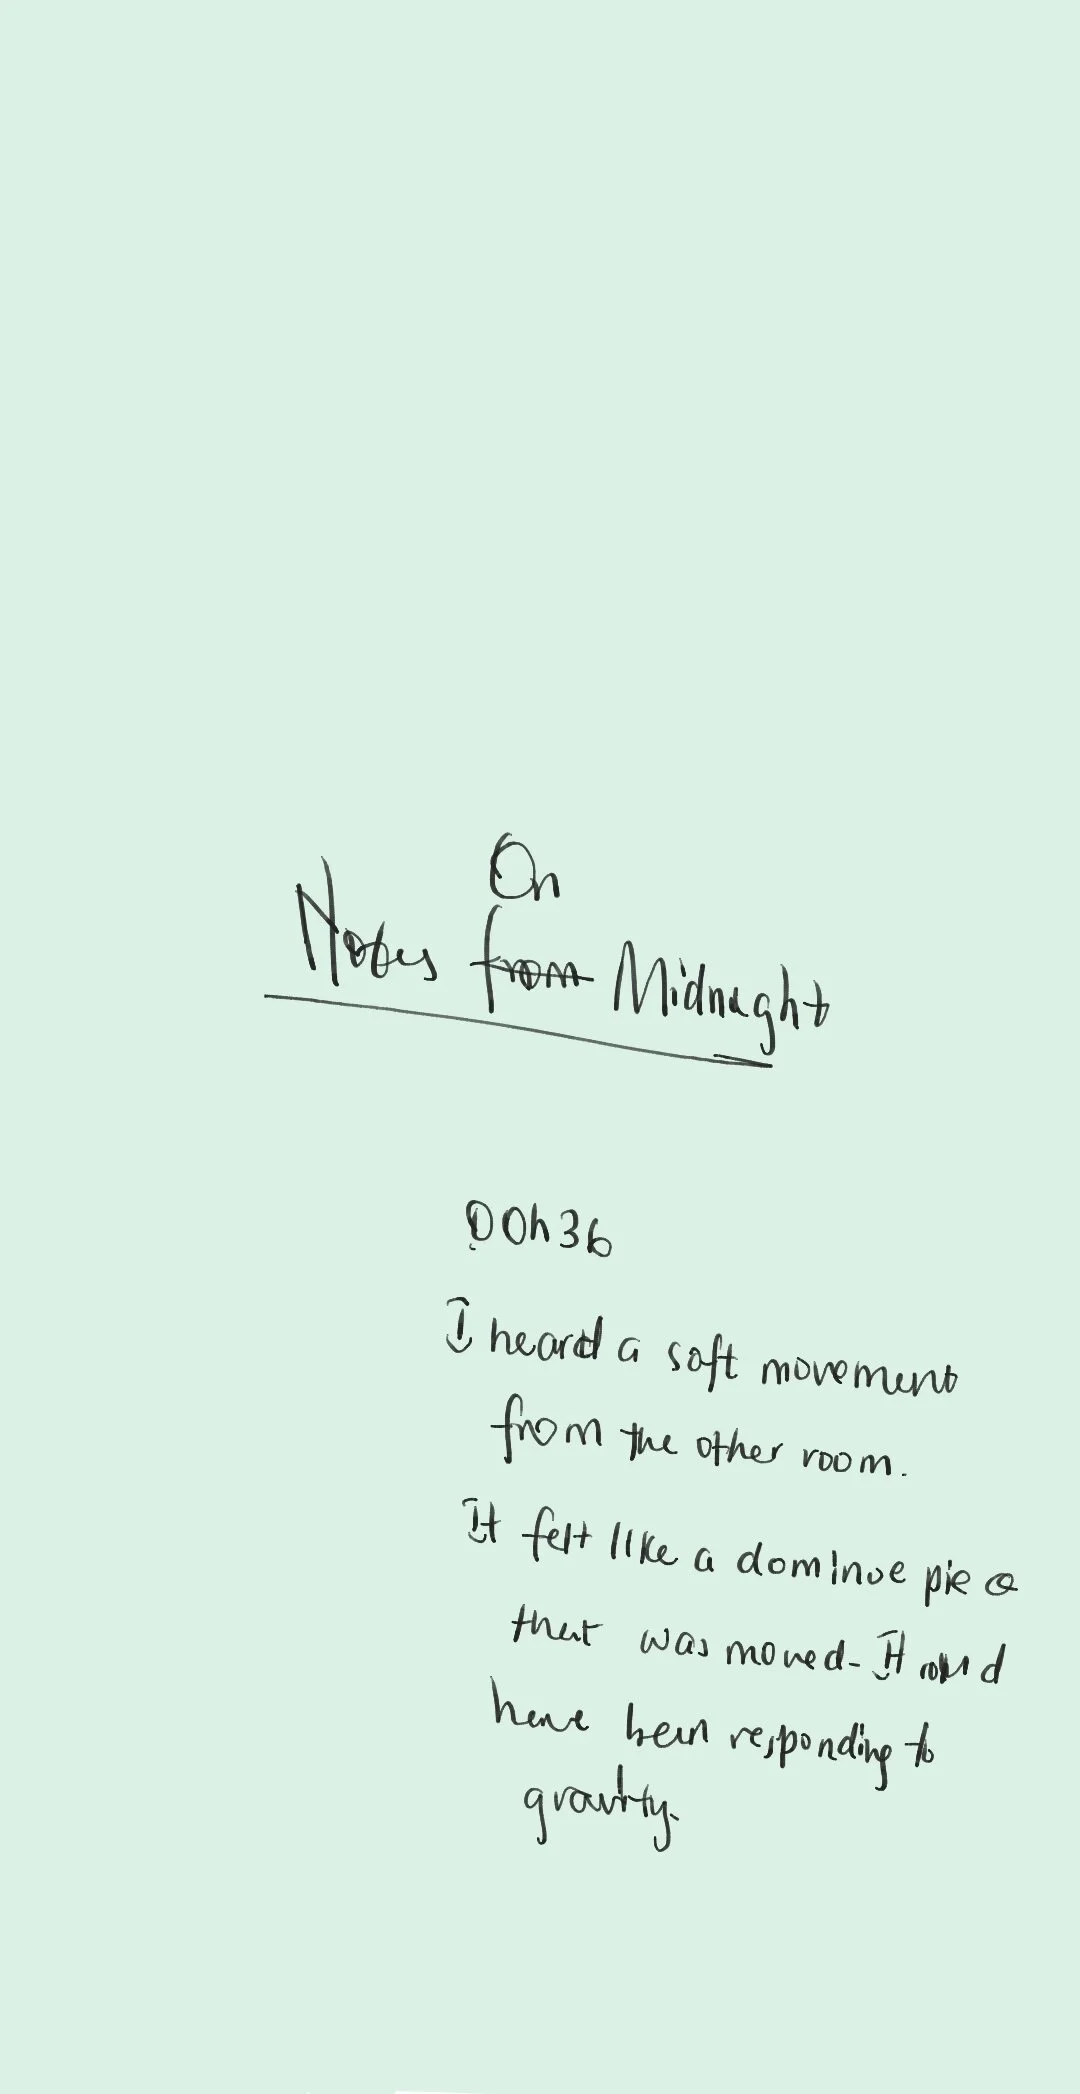 On
Notes from Midnight
00h36
I heard a soft movement
from the other room.
It felt like a dominoe piece
that was moved. It could
have been responding to
gravity.